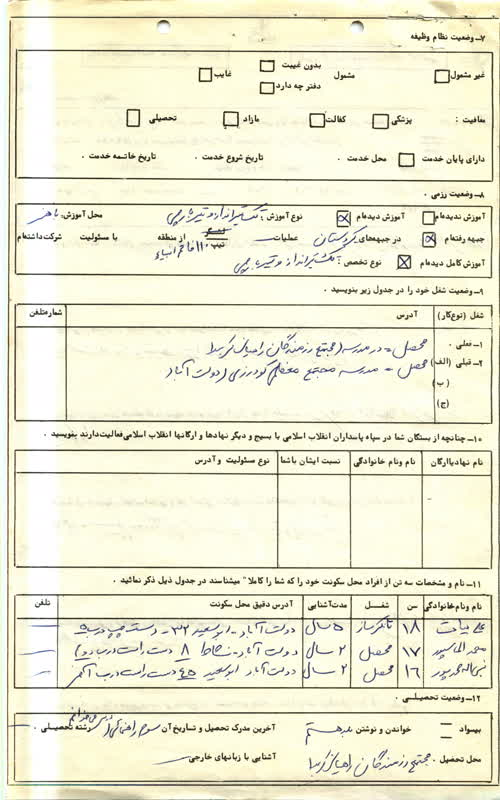 ۷ـ وضعیت نظام وظیفه
غیر مشمول مشمول بدون غیبت غایب
دفترچه دارد
معافیت : پزشکی کفالت مازاد تحصیلی
دارای پایان خدمت محل خدمت . تاریخ شروع خدمت . تاریخ خاتمه خدمت .
۸ـ وضعیت رزمی .
آموزش ندیده‌ام آموزش دیده‌ام نوع آموزش : محل آموزش :
جبهه رفته‌ام در جبهه‌های کردستان عملیات از منطقه تیپ ۱۱۰ خاتم الانبیاء با مسئولیت شرکت داشته‌ام
آموزش کامل دیده‌ام نوع تخصص :
۹ـ وضعیت شغل خود را در جدول زیر بنویسید .
شغل (نوع‌کار) آدرس شماره تلفن
۱ـ فعلی . محصل - در مدرسه (مجتمع رزمندگان راهیان کربلا
۲ـ قبلی (الف) محصل - مدرسه مجتمع معظم گودرزی (دولت آباد
(ب)
(ج)
۱۰ـ چنانچه از بستگان شما در سپاه پاسداران انقلاب اسلامی با بسیج و دیگر نهادها و ارگانها انقلاب اسلامی فعالیت دارند بنویسید .
نام نهاد یا ارگان نام و نام خانوادگی نسبت ایشان باشما نوع مسئولیت و آدرس
۱۱ـ نام و مشخصات سه تن از افراد محل سکونت خود را که شما را کاملا" میشناسند در جدول ذیل ذکر نمائید .
نام و نام خانوادگی سن شغل مدت آشنایی آدرس دقیق محل سکونت تلفن
علی ۱۸ ۵ سال دولت آباد - ابوسعید ۳۲ - دست چپ
۱۷ محصل ۲ سال دولت آباد - نشاط ۸ دست راست درب دوم
۱۶ محصل ۲ سال دولت آباد ابوسعید دست راست درب آخر
۱۲ـ وضعیت تحصیلی .
بیسواد خواندن و نوشتن بلد هستم آخرین مدرک تحصیل و تاریخ آن سوم راهنمائی رشته تحصیلی .
محل تحصیل . مجتمع رزمندگان راهیان کربلا آشنایی با زبانهای خارجی